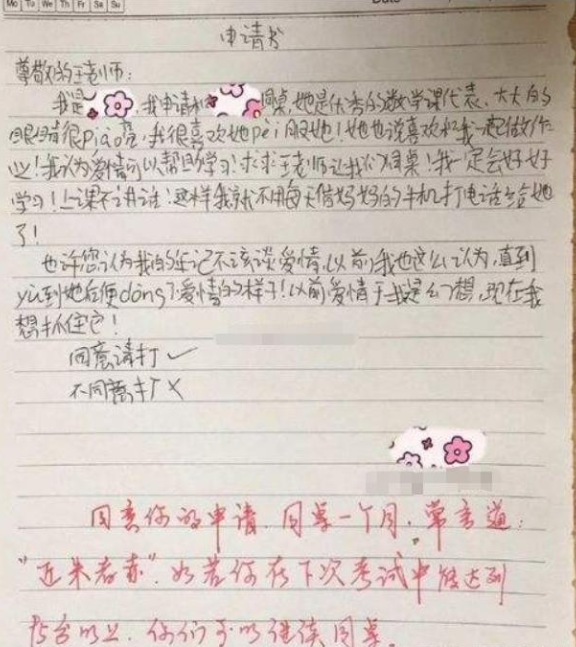 Mo Tu We Th Fr Sa Su
申请书
尊敬的王老师:
我是 ,我申请和 同桌,她是优秀的数学课代表、大大的
眼睛很piào亮,我很喜欢她pèi服她!她也说喜欢和我一起做作
业!我认为爱情可以帮助学习!求求王老师让我们同桌!我一定会好好
学习!上课不讲话!这样我就不用每天借妈妈的手机打电话给她
了!
也许您认为我的年记不该谈爱情,以前我也这么认为,直到
yù到她后便dǒng了爱情的样子!以前爱情于我是幻想,现在我
想抓住它!
同意请打✓
不同意打×
同意你的申请.同桌一个月,常言道:
"近朱者赤".如若你在下次考试中能达到
95分以上,你们可以继续同桌。